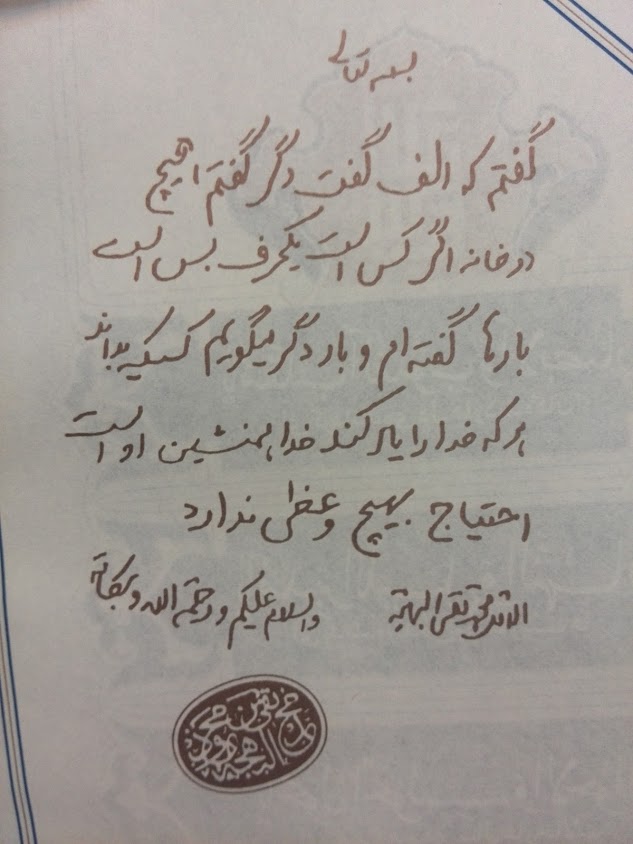 بسمه تعالی
گفتم که الف گفت دگر گفتم هیچ
در خانه اگر کس است یکحرف بس است
بارها گفته ام و بار دگر میگویم کسیکه بداند
هر که خدا را یاد کند خدا همنشین او است
احتیاج بهیچ وعظی ندارد
الاقل محمد تقی البهجة
والسلام علیکم ورحمة الله وبرکاته